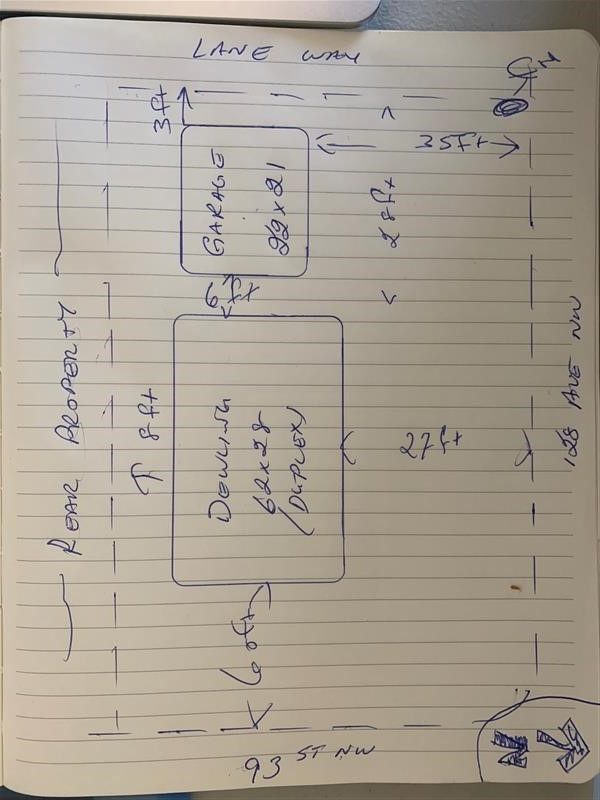 LANE WAY
3ft
GARAGE
22x21
35ft
28ft
6ft
REAR PROPERTY
8ft
DEWLING
62x28
(DUPLEX)
27ft
128 AVE NW
60ft
93 ST NW
N